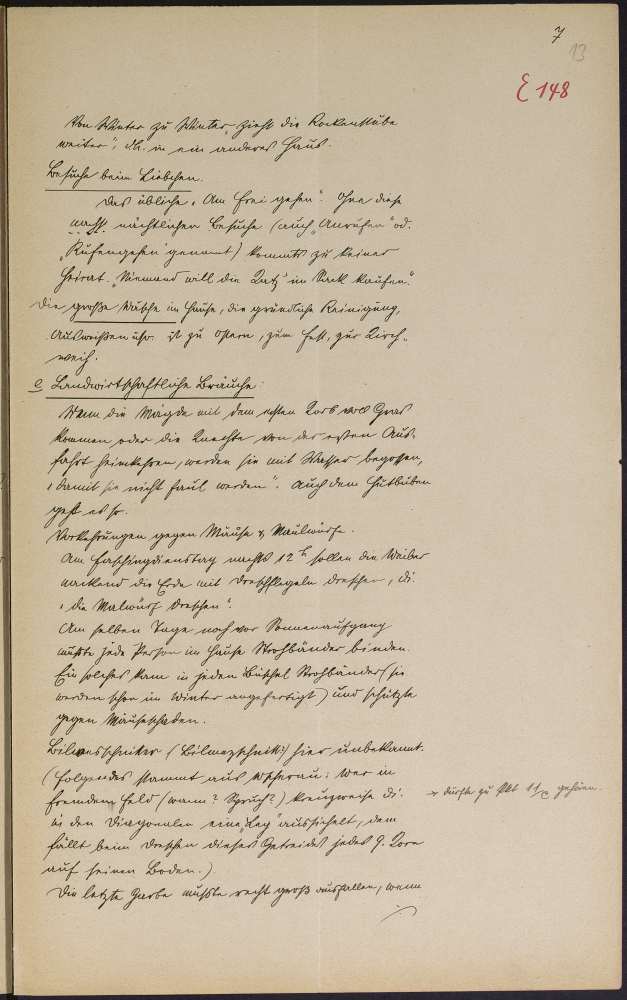 7
13
E 148
Von Winter zu Winter „zieht die Rockenstube
weiter“, dh. in ein anderes Haus.
Besuche beim Liebchen.
Das übliche „Am frei gehen“. Ohne diese
nächtlichen Besuche (auch „Anrufen“ od.
„Rufengehen“ genannt) kommts zu keiner
Heirat. „Niemand will die Katz' im Sack kaufen.“
Die große Wäsche im Hause, die gründliche Reinigung,
Ausweißen usw. ist zu Ostern, zum Fest, zur Kirch-
weih.
e Landwirtschaftliche Bräuche:
Wenn die Mägde mit dem ersten Korb voll Gras
kommen oder die Knechte von der ersten Aus-
fahrt heimkehren, werden sie mit Wasser begossen,
„damit sie nicht faul werden“. Auch dem Hütbuben
geht es so.
Vorkehrungen gegen Mäuse & Maulwürfe.
Am Faschingdienstag nachts 12 h sollen die Weiber
nackend die Erde mit Dreschflegeln dreschen, di.
„die Malwürf dreschen“.
Am selben Tage noch vor Sonnenaufgang
mußte jede Person im Hause Strohbänder binden.
Ein solches kam in jeden Büschel Strohbänder (sie
werden schon im Winter angefertigt) und schützte
gegen Mäuseschaden.
Bilmesschnitter (Bilmezschnitt) hier unbekannt.
(Folgendes stammt aus Wscherau: Wer in
fremdem Feld (wann? Spruch?) kreuzweise di.
in den Diagonalen eine „Leg“ aussichelt, dem
fällt beim Dreschen dieses Getreides jedes 9. Korn
auf seinen Boden.)
→ dürfte zu Pkt 11 gehören.
Die letzte Garbe mußte recht groß ausfallen, wenn